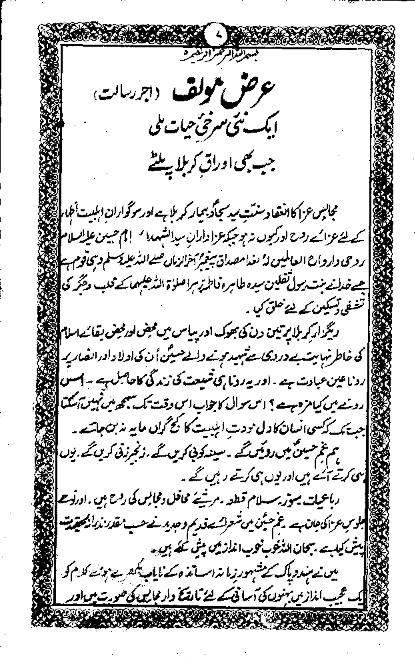 ۷
بسم اللہ الرحمن الرحیم
عرض مؤلف (اجر رسالت)
ایک نئی سرخیٔ حیات ملی
جب بھی اوراقِ کربلا پلٹے
مجالس عزا کا انعقاد سنتِ سید سجادؑ بیمار کربلا ہے اور سوگواران اہلبیت اطہار
کے لئے عزائے روح اور کیوں نہ ہو جبکہ عزاداران سید الشہداء امام حسین علیہ السلام
روحی و ارواح العالمین لہ الفدا مصداق پیغمبر آخر الزماں صلے اللہ علیہ وسلم وہی قوم ہے
جسے خدا نے بنت رسول ثقلین سیدہ طاہرہ فاطمہ زہرا صلوٰۃ اللہ علیہما کے قلب و جگر کی
تشفی و تسکین کے لئے خلق کیا۔
ریگزار کربلا پر تین دن کی بھوک اور پیاس میں محض اور محض بقائے اسلام
کی خاطر نہایت بے دردی سے شہید ہونے والے حسینؑ اُن کی اولاد اور انصار پر
رونا عین عبادت ہے۔ اور یہ رونا ہی شیعت کی زندگی کا حاصل ہے۔ اس
رونے میں کیا مزہ ہے؟ اس سوال کا جواب اس وقت تک سمجھ میں نہیں آسکتا
جب تک کہ کسی انسان کا دل مودتِ اہلبیت کا گنج گراں مایہ نہ بن جائے۔
ہم غمِ حسینؑ میں روئیں گے۔ سینہ کوبی کریں گے۔ زنجیر زنی کریں گے۔ یوں
ہی کرتے آئے ہیں اور یوں ہی کرتے رہیں گے۔
رباعیات سوز، سلام قطعہ۔ مرثیے محافل و مجالس کی روح ہیں۔ اور نوحے
جلوسِ عزا کی جان ہے۔ غمِ حسینؑ میں شعرائے قدیم و جدید نے حسب مقدور نذرانۂ عقیدت
پیش کیا ہے۔ سبحان اللہ خوب خوب انداز میں پیش کئے ہیں۔
میں نے ہند و پاک کے مشہور زمانہ اساتذہ کے نایاب بکھرے ہوئے کلام کو
ایک عجیب انداز میں بہنوں کی آسانی کے لئے تاریخ وار مجالس کی صورت میں اور